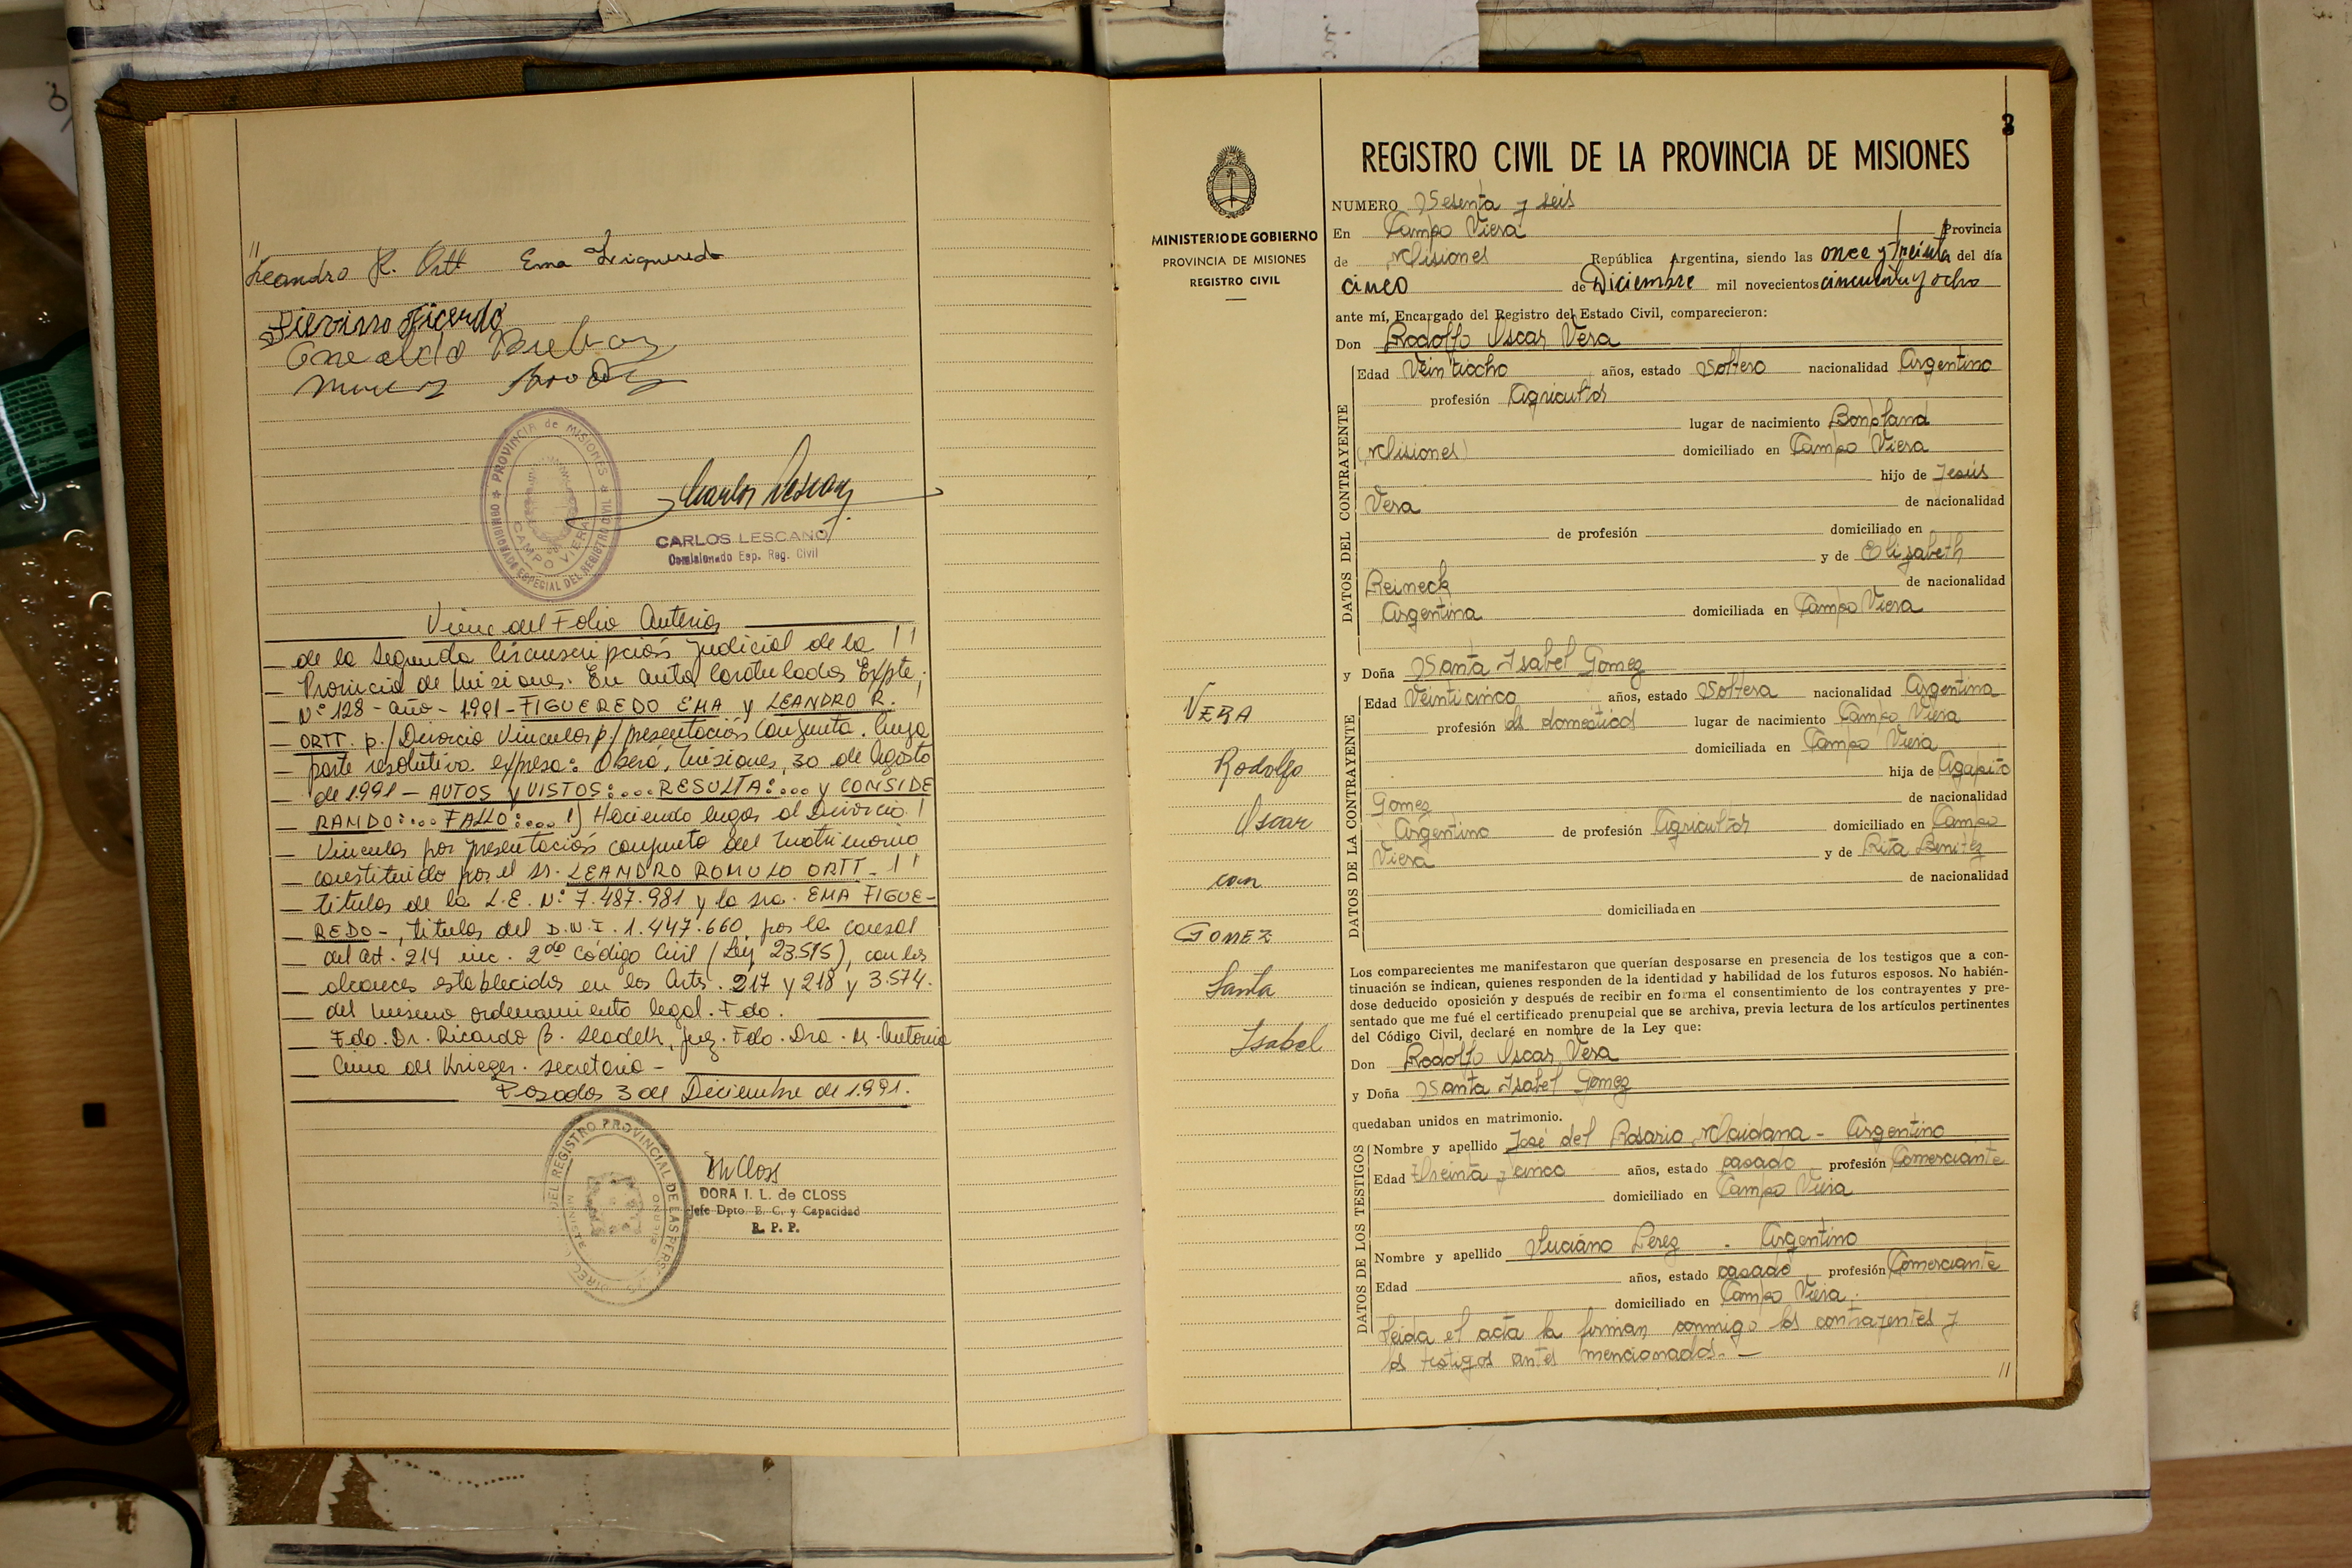 //
Leandro R. Ortt Ema Figueredo
CARLOS LESCANO
Comisionado Esp. Reg. Civil
PROVINCIA de MISIONES
COMISIONADO ESPECIAL DEL REGISTRO CIVIL
CAMPO VIERA
Viene del Folio Anterior
— de la Segunda Circunscripción Judicial de la !!
— Provincia de Misiones. En autos Caratulados Expte;
— N° 128 - año - 1991 - FIGUEREDO EMA y LEANDRO R.
— ORTT. p./ Divorcio Vincular p/ presentación Conjunta. Cuya
— parte resolutiva expresa: Oberá, Misiones, 30 de Agosto
— de 1991 — AUTOS y VISTOS:... RESULTA:... y CONSIDE
— RANDO:... FALLO:... 1) Haciendo lugar al Divorcio !
— Vincular por presentación conjunta del Matrimonio
— constituido por el Sr. LEANDRO ROMULO ORTT - !!
— titular de la L.E. N° 7.487.981 y la sra. EMA FIGUE-
— REDO -, titular del D.N.I. 1.447.660, por la causal
— del art. 214 inc. 2do Código Civil (Ley 23.515), con los
— alcances establecidos en los Arts. 217 y 218 y 3.574.
— del mismo ordenamiento legal. Fdo.
— Fdo. Dr. Ricardo B. juez. Fdo. Dra. M. Antonia
— de Krieger. secretaria —
Posadas 3 de Diciembre de 1991.
DORA I. L. de CLOSS
Jefe Dpto. E. C. y Capacidad
R. P. P.
MINISTERIO DE GOBIERNO
PROVINCIA DE MISIONES
REGISTRO CIVIL
VERA
Rodolfo
Oscar
con
GOMEZ
Santa
Isabel
REGISTRO CIVIL DE LA PROVINCIA DE MISIONES
NUMERO Sesenta y seis
En Campo Viera Provincia
de Misiones República Argentina, siendo las once y treinta del día
cinco de Diciembre mil novecientos cincuenta y ocho
ante mí, Encargado del Registro del Estado Civil, comparecieron:
Don Rodolfo Oscar Vera
DATOS DEL CONTRAYENTE
Edad Veintiocho años, estado Soltero nacionalidad Argentino
profesión Agricultor
lugar de nacimiento Bonpland
(Misiones) domiciliado en Campo Viera
hijo de Jesús
Vera de nacionalidad
de profesión domiciliado en
y de Elisabeth
Reineck de nacionalidad
Argentina domiciliada en Campo Viera
y Doña Santa Isabel Gomez
DATOS DE LA CONTRAYENTE
Edad Veinticinco años, estado Soltera nacionalidad Argentina
profesión ds domésticas lugar de nacimiento Campo Viera
domiciliada en Campo Viera
hija de Agapito
Gomez de nacionalidad
Argentino de profesión Agricultor domiciliado en Campo
Viera y de Rita Benitez
de nacionalidad
domiciliada en
Los comparecientes me manifestaron que querían desposarse en presencia de los testigos que a con-
tinuación se indican, quienes responden de la identidad y habilidad de los futuros esposos. No habién-
dose deducido oposición y después de recibir en forma el consentimiento de los contrayentes y pre-
sentado que me fué el certificado prenupcial que se archiva, previa lectura de los artículos pertinentes
del Código Civil, declaré en nombre de la Ley que:
Don Rodolfo Oscar Vera
y Doña Santa Isabel Gomez
quedaban unidos en matrimonio.
DATOS DE LOS TESTIGOS
Nombre y apellido José del Rosario Maidana - Argentino
Edad treinta y cinco años, estado casado profesión Comerciante
domiciliado en Campo Viera
Nombre y apellido Luciano Perez . Argentino
Edad años, estado casado profesión Comerciante
domiciliado en Campo Viera.
Leida el acta la firman conmigo los contrayentes y
los testigos antes mencionados. —
//